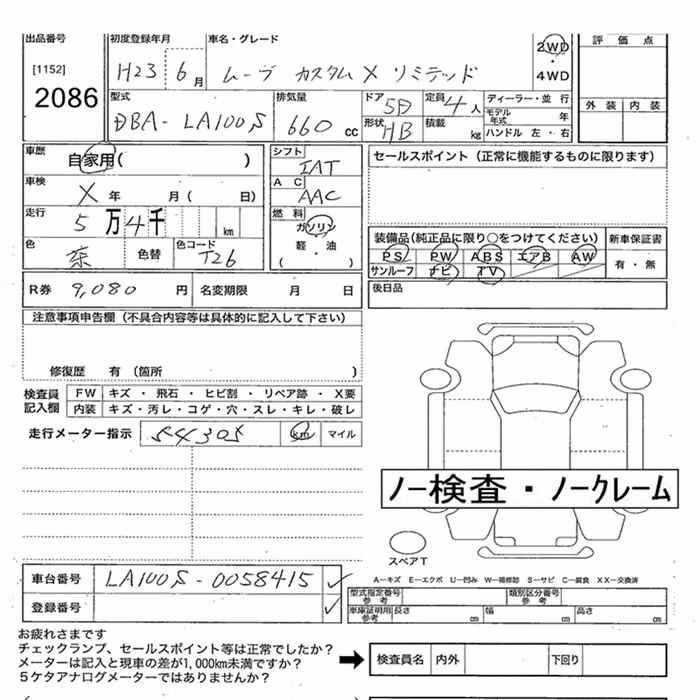 出品番号 初度登録年月 車名・グレード 2WD 評価点
[1152] H23 6月 ムーブ カスタム X リミテッド ・
2086 4WD
型式 排気量 ドア 5D 定員 4人 ディーラー・並行 外装 内装
DBA-LA100S 660cc 形状 HB 積載 kg モデル年式 年
ハンドル 左・右
車歴 自家用( ) シフト IAT セールスポイント(正常に機能するものに限ります)
車検 X年 月( 日) AC AAC
走行 5万4千 km 燃料 ガソリン・軽・油 ( ) 装備品(純正品に限り○をつけてください) 新車保証書
色 茶 色替 色コード T26 PS PW ABS エアB AW 有・無
サンルーフ ナビ TV
R券 9,080円 名変期限 月 日 後日品
注意事項申告欄(不具合内容等は具体的に記入して下さい)
修復歴 有(箇所 )
検査員記入欄 FW キズ・飛石・ヒビ割・リペア跡・X要
内装 キズ・汚レ・コゲ・穴・スレ・キレ・破レ
走行メーター指示 54305 km マイル
ノー検査・ノークレーム
スペアT
車台番号 LA100S-0058415 ✓
A-キズ E-エクボ U-凹み W-補修跡 S-サビ C-腐食 XX-交換済
登録番号 ✓
型式指定番号 参考 類別区分番号 参考
車庫証明用 参考 長さ cm 幅 cm 高さ cm
お疲れさまです
チェックランプ、セールスポイント等は正常でしたか?
メーターは記入と現車の差が1,000km未満ですか? ➡ 検査員名 内外 下回り
5ケタアナログメーターではありませんか?